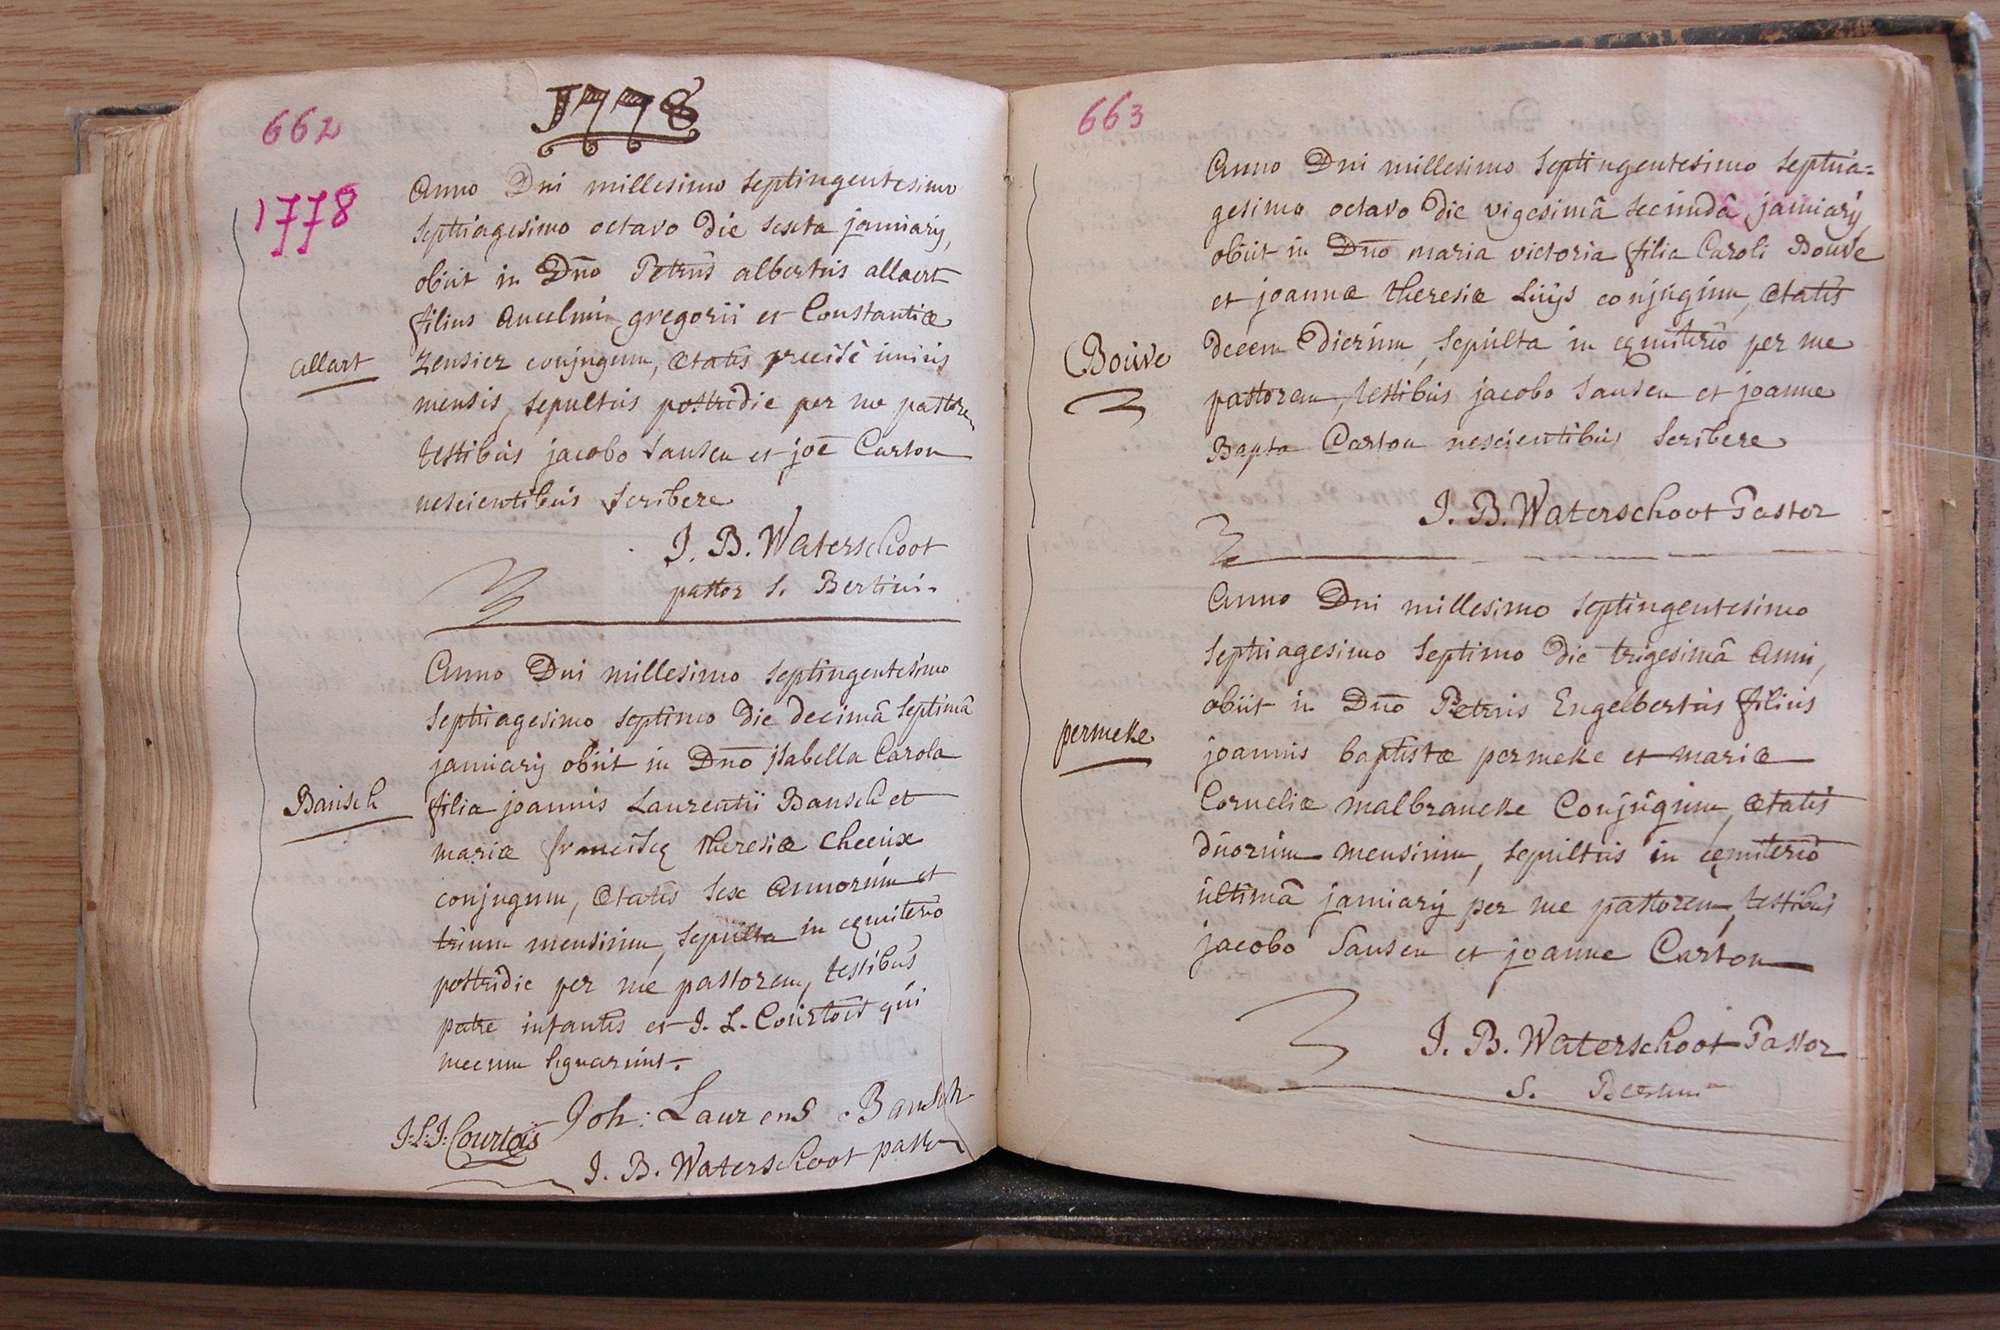 662
1778
1778
Anno Dni millesimo septingentesimo
septuagesimo octavo die sexta januarij,
obiit in Dno Petrus albertus allaert
filius Ancelmi gregorii et Constantiæ
Zensier conjugum, ætatis precisè unius
allart
mensis, sepultus postridie per me pastorem
testibus jacobo Sansen et joē Carton
nescientibus scribere
J. B. Waterschoot
pastor S. Bertini.
Anno Dni millesimo septingentesimo
septuagesimo septimo die decimâ septimâ
januarij obiit in Dno jsabella Carola
Bausch
filia joannis Laurentii Bausch et
mariæ franciscę theresiæ Checux
conjugum, ætatis sex annorum et
trium mensium, sepulta in cęmiterio
postridie per me pastorem, testibus
patre infantis et J. L. Courtois qui
mecum signarunt.
J:L:J: Courtois Joh: Laurens Bausch
J. B. Waterschoot pastor
663
Anno Dni millesimo septingentesimo septua=
gesimo octavo die vigesimâ secundâ januarij
obiit in Dno maria victoria filia Caroli Bouve
et joannæ theresiæ Luijs conjugum, ætatis
Bouve
decem dierum, sepulta in cęmiterio per me
pastorem, testibus jacobo Sansen et joanne
Bapta Carton nescientibus scribere
J. B. Waterschoot Pastor
Anno Dni millesimo septingentesimo
septuagesimo septimo die trigesimâ anni,
obiit in Dno Petrus Engelbertus filius
permeke
joannis baptistæ permeke et mariæ
Corneliæ malbrancke Conjugum, ætatis
duorum mensium, sepultus in cęmiterio
ultimâ januarij per me pastorem, testibus
jacobo Sansen et joanne Carton
J. B. Waterschoot Pastor
S.